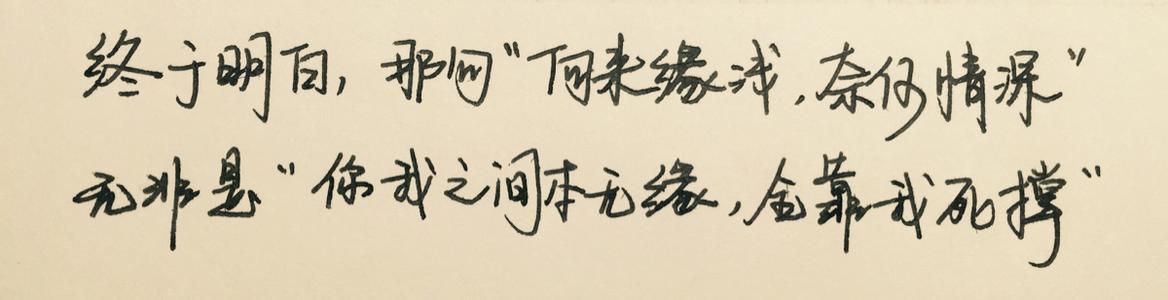 终于明白，那句“何来缘浅，奈何情深”
无非是“你我之间本无缘，全靠我死撑”